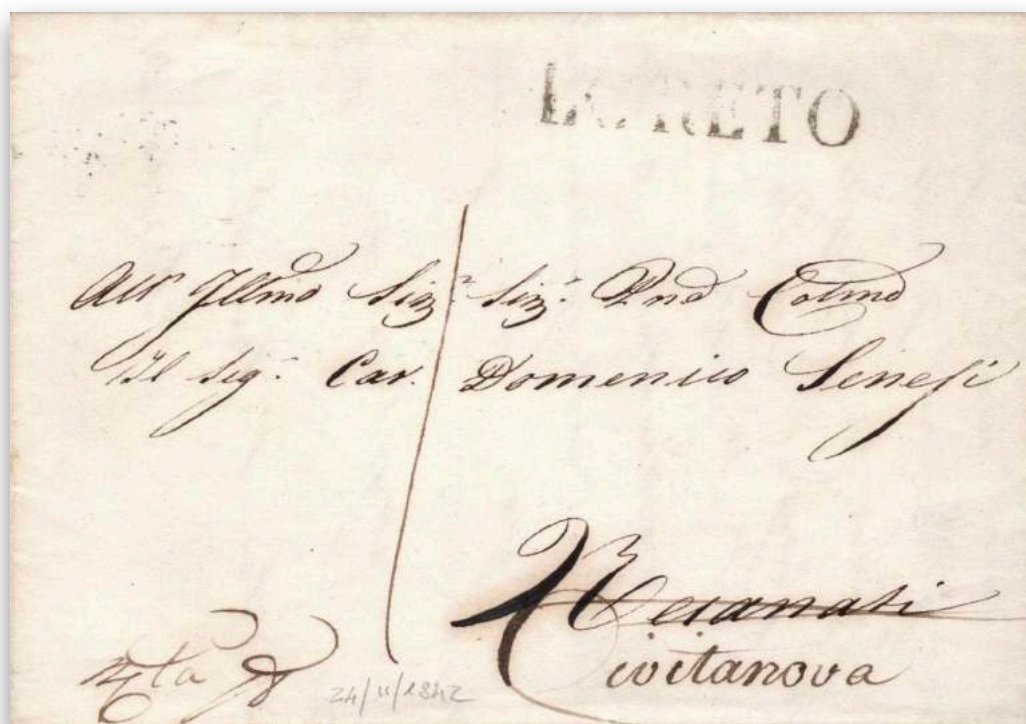 LORETO
All' Illmo Sig.r Sig.r Pnd Colmo
Il Sig.r Cav. Domenico Senesi
Recanati
Civitanova
24/11/1842